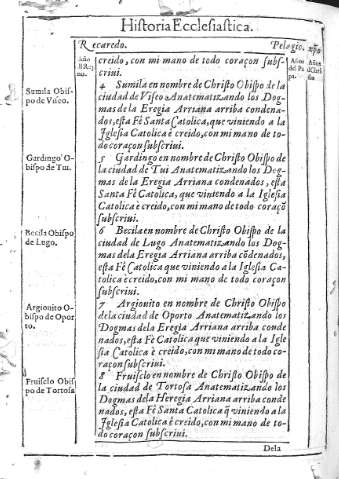 Historia Ecclesiastica.
Recaredo.
Pelagio.
creido, con mi mano de todo coraçon subs-
crivi.
4 Sumila en nombre de Christo Obispo de la
ciudad de Viseo Anatematizando los Dog-
mas de la Eregia Arriana arriba condena-
dos, esta Fè Santa Catolica, que viniendo a la
Iglesia Catolica è creido, con mi mano de to-
do coraçon subscrivi.
5 Gardingo en nombre de Christo Obispo de
la ciudad de Tui Anatematizando los Dog-
mas de la Eregia Arriana condenados, esta
Santa Fè Catolica, que viniendo a la Iglesia
Catolica è creido, con mi mano de todo coraçō
subscrivi.
6 Becila en nombre de Christo Obispo de la
ciudad de Lugo Anatematizando los Dog-
mas de la Eregia Arriana arriba cōdenados,
esta Fè Catolica que viniendo a la Iglesia Ca-
tolica è creido, con mi mano de todo coraçon
subscrivi.
7 Argiouito en nombre de Christo Obispo
de la ciudad de Oporto Anatematizando los
Dogmas de la Eregia Arriana arriba conde
nados, esta Fè Catolica que viniendo a la Igle
sia Catolica è creido, con mi mano de todo co-
raçon subscrivi.
8 Fruisclo en nombre de Christo Obispo de
la ciudad de Tortosa Anatematizando los
Dogmas de la Heregia Arriana arriba conde
nados, esta Fè Santa Catolica q̄ viniendo a la
Iglesia Catolica è creido, con mi mano de to-
do coraçon subscrivi.
Sumila Obis-
po de Viseo.
Gardingo O-
bispo de Tui.
Becila Obispo
de Lugo.
Argiouito O-
bispo de Opor
to.
Fruisclo Obis
po de Tortosa
Dela